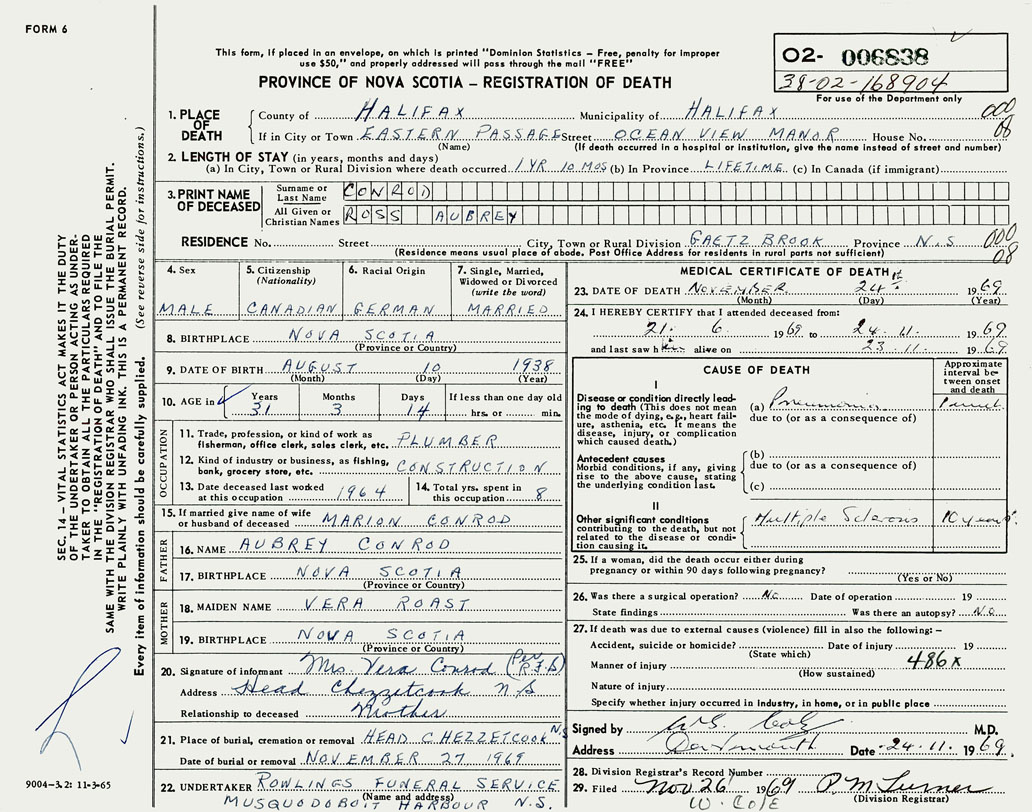 FORM 6
This form, if placed in an envelope, on which is printed "Dominion Statistics – Free, penalty for improper
use $50," and properly addressed will pass through the mail "FREE"
PROVINCE OF NOVA SCOTIA – REGISTRATION OF DEATH
02- 006838
38-02-168904
For use of the Department only
1. PLACE OF DEATH
County of HALIFAX Municipality of HALIFAX 000
If in City or Town EASTERN PASSAGE Street OCEAN VIEW MANOR House No. 08
(Name) (If death occurred in a hospital or institution, give the name instead of street and number)
2. LENGTH OF STAY (in years, months and days)
(a) In City, Town or Rural Division where death occurred 1 YR 10 MOS (b) In Province LIFETIME (c) In Canada (if immigrant)
3. PRINT NAME OF DECEASED
Surname or Last Name CONROD
All Given or Christian Names ROSS AUBREY
RESIDENCE No. Street City, Town or Rural Division GAETZ BROOK Province N.S 000
(Residence means usual place of abode. Post Office Address for residents in rural parts not sufficient) 08
4. Sex
MALE
5. Citizenship
(Nationality)
CANADIAN
6. Racial Origin
GERMAN
7. Single, Married,
Widowed or Divorced
(write the word)
MARRIED
8. BIRTHPLACE NOVA SCOTIA
(Province or Country)
9. DATE OF BIRTH AUGUST 10 1938
(Month) (Day) (Year)
10. AGE in
Years Months Days If less than one day old
31 3 14 hrs. or min.
OCCUPATION
11. Trade, profession, or kind of work as
fisherman, office clerk, sales clerk, etc. PLUMBER
12. Kind of industry or business, as fishing,
bank, grocery store, etc. CONSTRUCTION
13. Date deceased last worked
at this occupation 1964
14. Total yrs. spent in
this occupation 8
15. If married give name of wife
or husband of deceased MARION CONROD
FATHER
16. NAME AUBREY CONROD
17. BIRTHPLACE NOVA SCOTIA
(Province or Country)
MOTHER
18. MAIDEN NAME VERA ROAST
19. BIRTHPLACE NOVA SCOTIA
(Province or Country)
20. Signature of informant Mrs. Vera Conrod (Per
Address Head Chezzetcook N S
Relationship to deceased Mother
21. Place of burial, cremation or removal HEAD CHEZZETCOOK N.S
Date of burial or removal NOVEMBER 27 1969
22. UNDERTAKER ROWLINGS FUNERAL SERVICE
(Name and address)
MUSQUODOBOIT HARBOUR N.S.
MEDICAL CERTIFICATE OF DEATH
23. DATE OF DEATH NOVEMBER 24th 1969
(Month) (Day) (Year)
24. I HEREBY CERTIFY that I attended deceased from:
21. 6 1969 to 24.11. 1969.
and last saw him alive on 23.11. 1969.
CAUSE OF DEATH
Approximate
interval be-
tween onset
and death
I
Disease or condition directly lead-
ing to death (This does not mean
the mode of dying, e.g., heart fail-
ure, asthenia, etc. It means the
disease, injury, or complication
which caused death.
(a) Pneumonia
due to (or as a consequence of)
Antecedent causes
Morbid conditions, if any, giving
rise to the above cause, stating
the underlying condition last.
(b)
due to (or as a consequence of)
(c)
II
Other significant conditions
contributing to the death, but not
related to the disease or condi-
tion causing it.
Multiple Sclerosis 10 years.
25. If a woman, did the death occur either during
pregnancy or within 90 days following pregnancy?
(Yes or No)
26. Was there a surgical operation? No Date of operation 19
State findings Was there an autopsy? No
27. If death was due to external causes (violence) fill in also the following: –
Accident, suicide or homicide? Date of injury 19
(State which)
Manner of injury 486x
(How sustained)
Nature of injury
Specify whether injury occurred in industry, in home, or in public place
Signed by M.D.
Address Dartmouth Date 24.11. 1969.
28. Division Registrar's Record Number
29. Filed Nov 26 1969 P M Turner
(Division Registrar)
W. COLE
SEC. 14 – VITAL STATISTICS ACT MAKES IT THE DUTY
OF THE UNDERTAKER OR PERSON ACTING AS UNDER-
TAKER TO OBTAIN ALL THE PARTICULARS REQUIRED
IN THE "REGISTRATION OF DEATH" AND TO FILE THE
SAME WITH THE DIVISION REGISTRAR WHO SHALL ISSUE THE BURIAL PERMIT.
WRITE PLAINLY WITH UNFADING INK. THIS IS A PERMANENT RECORD.
Every item of information should be carefully supplied. (See reverse side for instructions.)
9004-3.2: 11-3-65